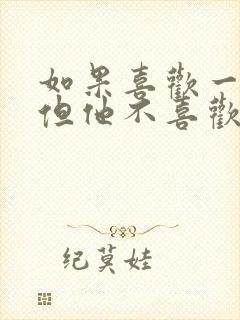 如果喜歡一
但他不喜歡
纪莫娃